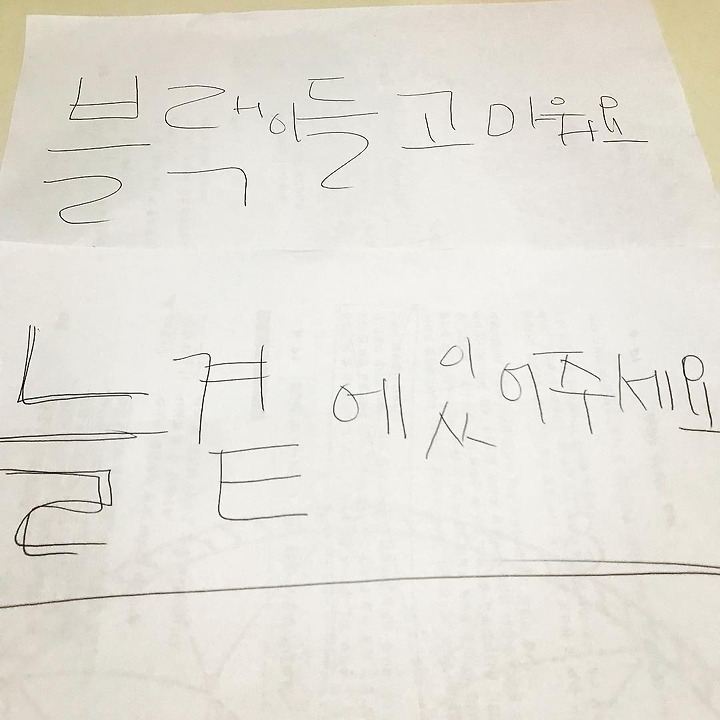 블랙이들 고마워요
늘 곁에 있어주세요